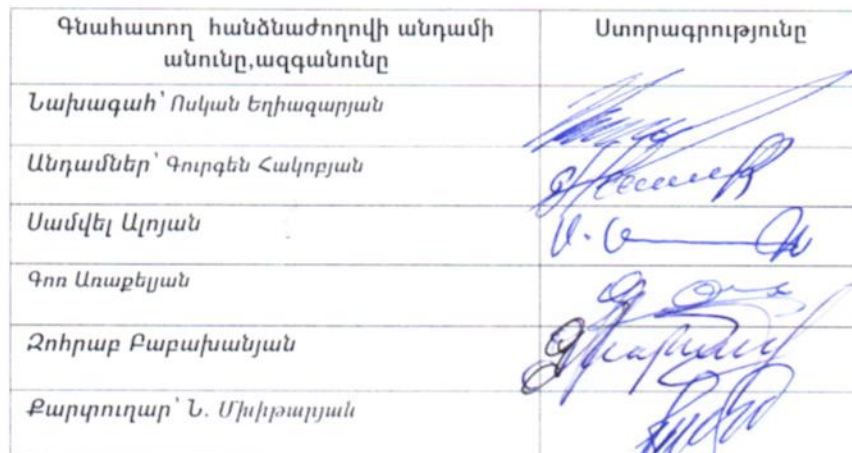 Գնահատող հանձնաժողովի անդամի
անունը,ազգանունը
Ստորագրությունը
Նախագահ՝ Ոսկան Եղիազարյան
Անդամներ՝ Գուրգեն Հակոբյան
Սամվել Ալոյան
Գոռ Առաքելյան
Զոհրաբ Բաբախանյան
Քարտուղար՝ Ն. Մխիթարյան